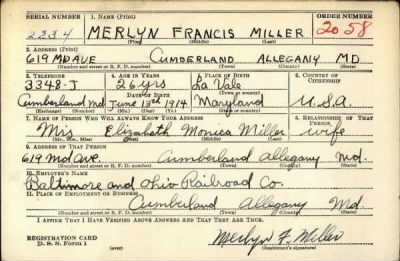 SERIAL NUMBER 1. NAME (Print) ORDER NUMBER
2234 MERLYN FRANCIS MILLER 2058
(First) (Middle) (Last)
2. ADDRESS (Print)
619 MD AVE CUMBERLAND ALLEGANY MD.
(Number and street or R. F. D. number) (Town) (County) (State)
3. TELEPHONE 4. AGE IN YEARS 5. PLACE OF BIRTH 6. COUNTRY OF CITIZENSHIP
3348-J 26 yrs La Vale
DATE OF BIRTH (Town or county)
Cumberland Md June 13th 1914 Maryland U.S.A.
(Exchange) (Number) (Mo.) (Day) (Yr.) (State or country)
7. NAME OF PERSON WHO WILL ALWAYS KNOW YOUR ADDRESS 8. RELATIONSHIP OF THAT PERSON
Mrs Elizabeth Monica Miller wife
(Mr., Mrs., Miss) (First) (Middle) (Last)
9. ADDRESS OF THAT PERSON
619 Md Ave. Cumberland Allegany Md.
(Number and street or R. F. D. number) (Town) (County) (State)
10. EMPLOYER'S NAME
Baltimore and Ohio Railroad Co.
11. PLACE OF EMPLOYMENT OR BUSINESS
Cumberland Allegany Md
(Number and street or R. F. D. number) (Town) (County) (State)
I AFFIRM THAT I HAVE VERIFIED ABOVE ANSWERS AND THAT THEY ARE TRUE.
REGISTRATION CARD
D. S. S. Form 1 (over) Merlyn F. Miller
(Registrant's signature)